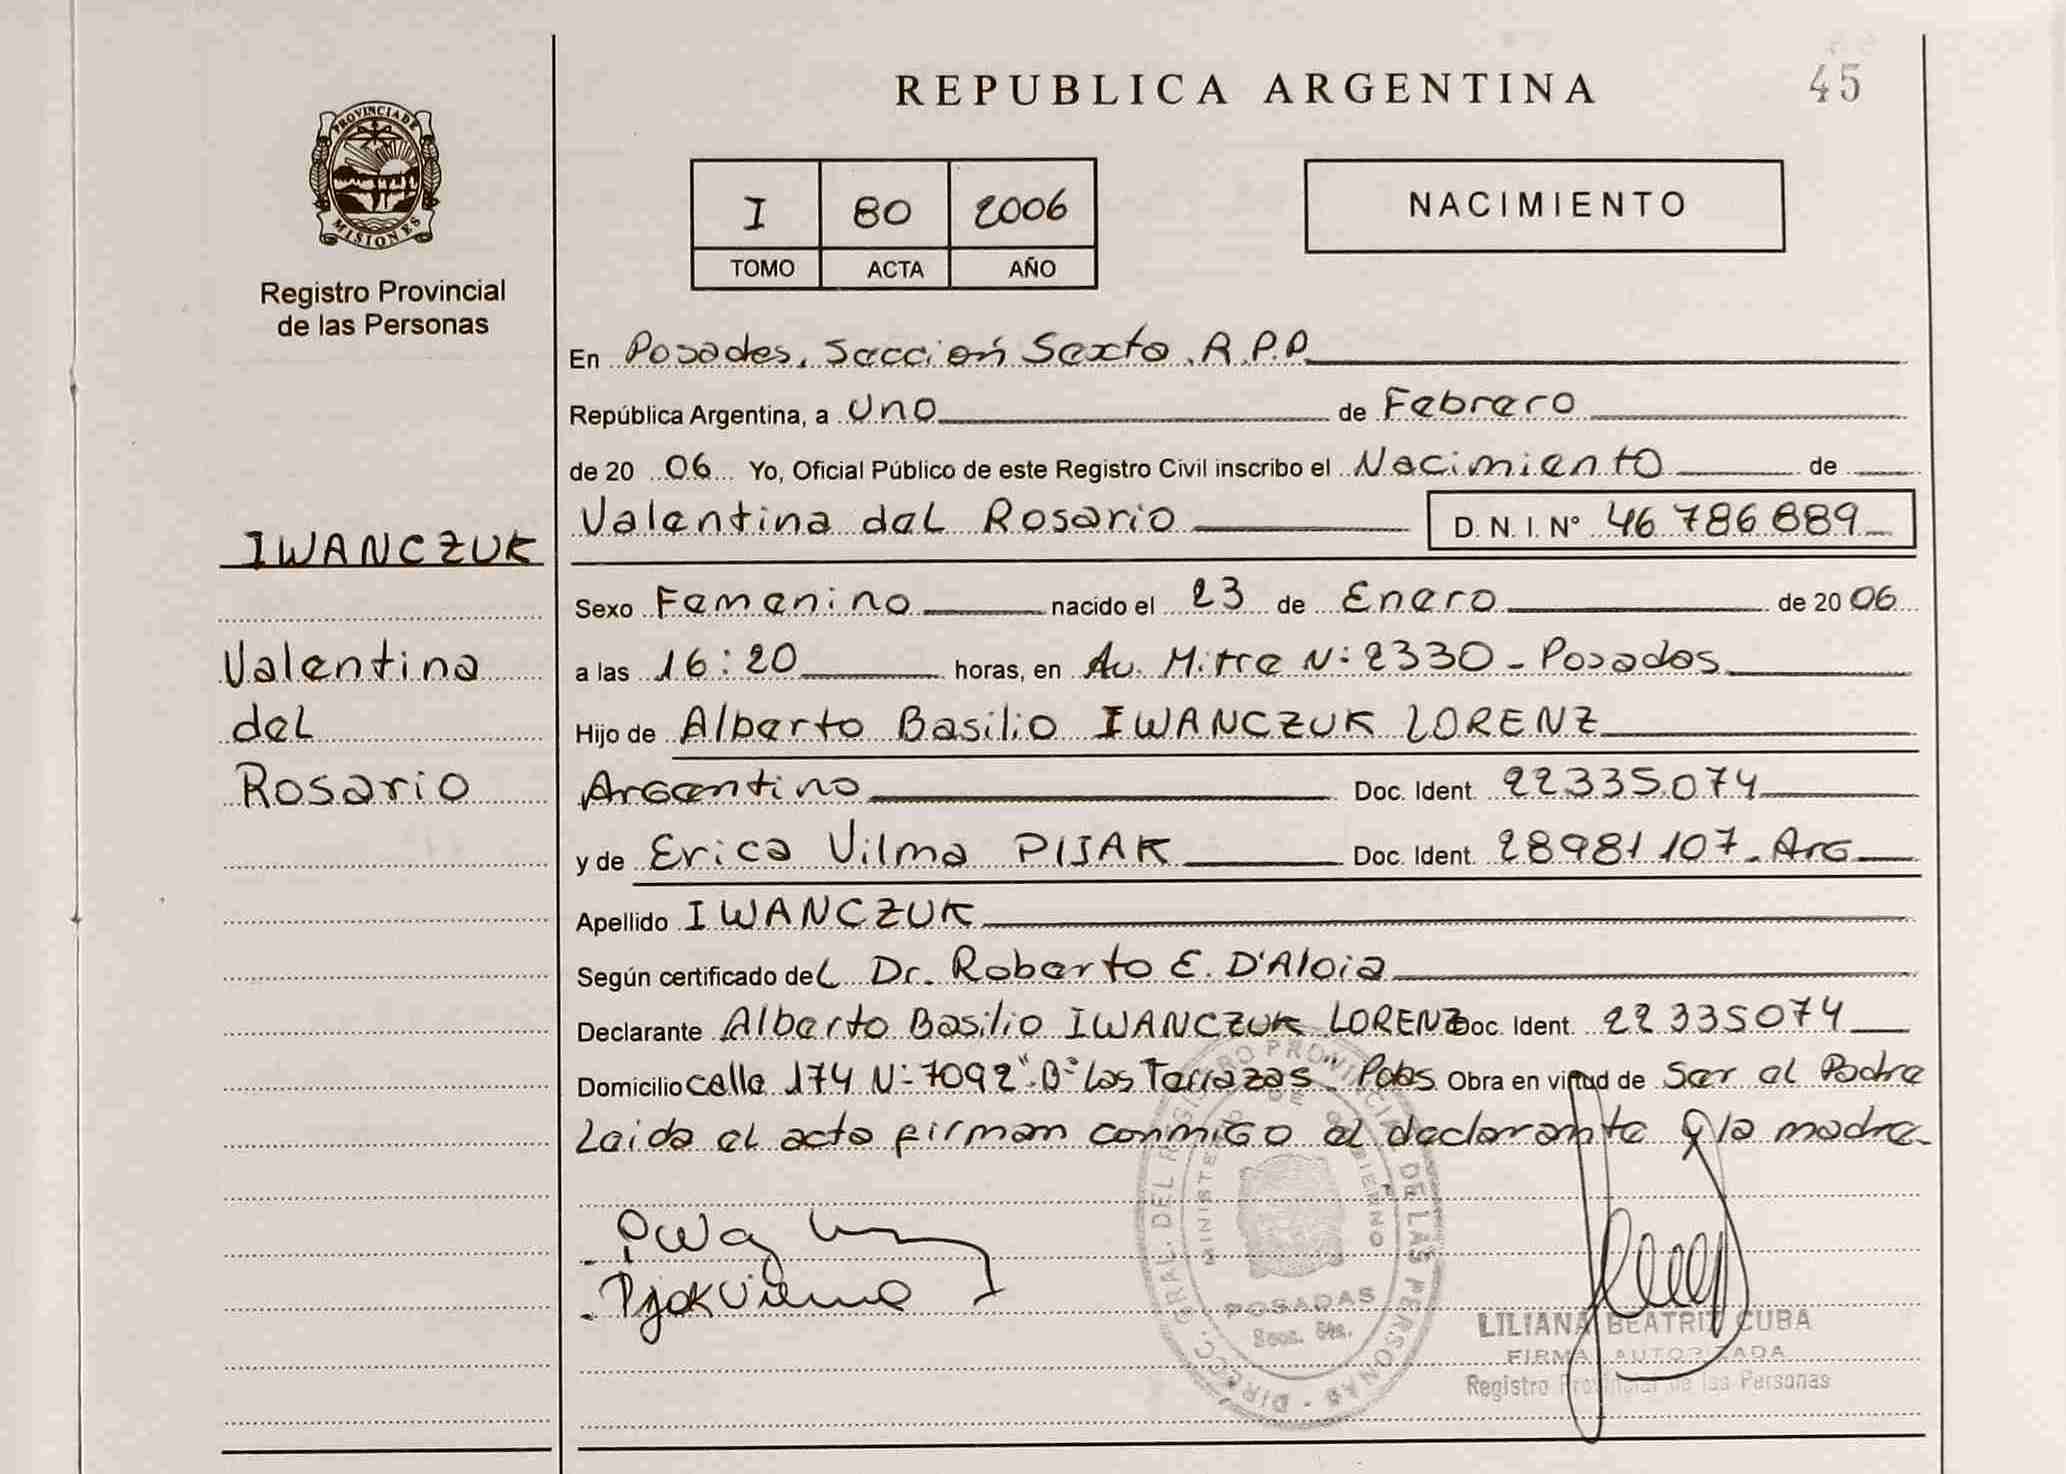 REPUBLICA ARGENTINA
45
PROVINCIA DE
MISIONES
Registro Provincial
de las Personas
I 80 2006
TOMO ACTA AÑO
NACIMIENTO
En Posadas, Sección Sexta, R.P.P.
República Argentina, a Uno de Febrero
de 20 06 Yo, Oficial Público de este Registro Civil inscribo el Nacimiento de
Valentina del Rosario D. N. I. N° 46 786 889
IWANCZUK
Valentina
del
Rosario
Sexo Femenino nacido el 23 de Enero de 20 06
a las 16:20 horas, en Av. Mitre N: 2330 - Posadas
Hijo de Alberto Basilio IWANCZUK LORENZ
Argentino Doc. Ident. 22335074
y de Erica Vilma PIJAK Doc. Ident. 28981107 - Arg
Apellido IWANCZUK
Según certificado del Dr. Roberto E. D'Aloia
Declarante Alberto Basilio IWANCZUK LORENZ Doc. Ident. 22 335074
Domicilio calle 174 N: 7092 "B° Las Terrazas" Pdas Obra en virtud de Ser el Padre
Leida el acta firman conmigo el declarante y la madre
Pijak Vilma
DIRECC. GRAL. DEL REGISTRO PROVINCIAL DE LAS PERSONAS
MINISTERIO DE GOBIERNO
POSADAS
Secc. 6ta.
LILIANA BEATRIZ CUBA
FIRMA AUTORIZADA
Registro Provincial de las Personas